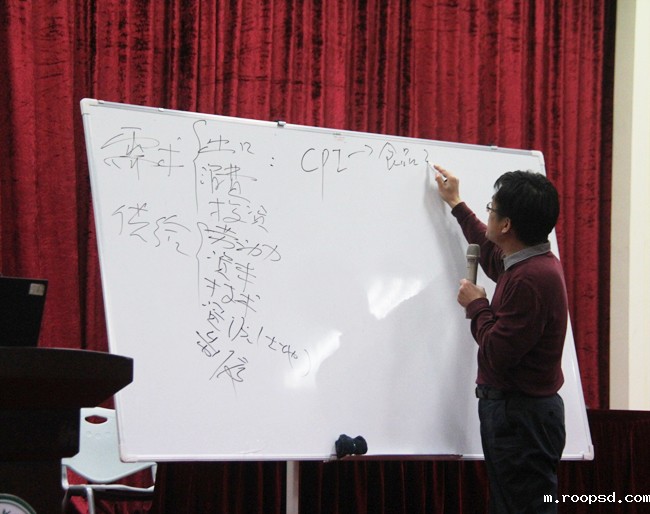 需求 { 出口
消费 : CPI → 食品
投资
供给 { 劳动力
资本
技术
资源(土地)
制度
m.roopsd.com